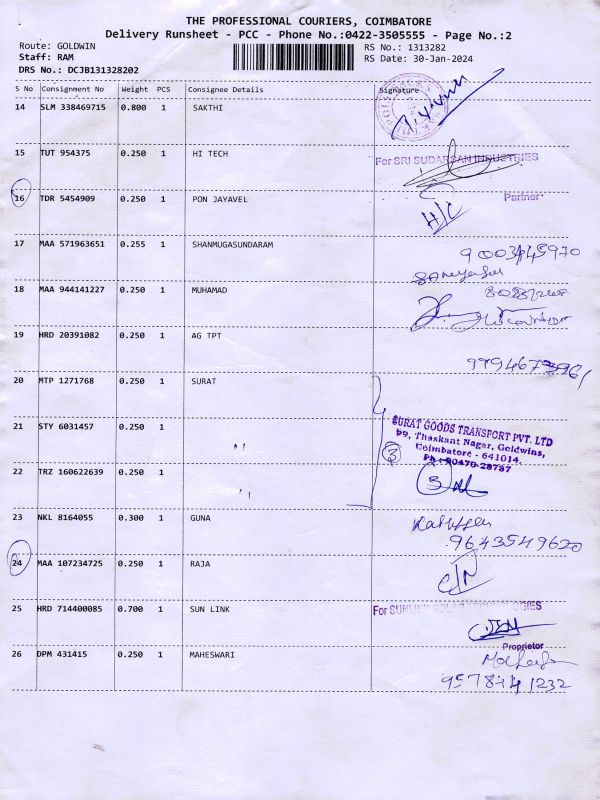 THE PROFESSIONAL COURIERS, COIMBATORE
Delivery Runsheet - PCC - Phone No.:0422-3505555 - Page No.:2
Route: GOLDWIN
RS No.: 1313282
Staff: RAM
RS Date: 30-Jan-2024
DRS No.: DCJB131328202
S No Consignment No Weight PCS Consignee Details Signature
14 SLM 338469715 0.800 1 SAKTHI
15 TUT 954375 0.250 1 HI TECH
For SRI SUDARSAN INDUSTRIES
Partner
16 TDR 5454909 0.250 1 PON JAYAVEL
17 MAA 571963651 0.255 1 SHANMUGASUNDARAM
18 MAA 944141227 0.250 1 MUHAMAD
19 HRD 20391082 0.250 1 AG TPT
20 MTP 1271768 0.250 1 SURAT
21 STY 6031457 0.250 1 "
SURAT GOODS TRANSPORT PVT. LTD
99, Thaskant Nagar, Goldwins,
Coimbatore - 641014.
3
22 TRZ 160622639 0.250 1 "
3
23 NKL 8164055 0.300 1 GUNA
9643549620
24 MAA 107234725 0.250 1 RAJA
25 HRD 714400085 0.700 1 SUN LINK
Proprietor
26 DPM 431415 0.250 1 MAHESWARI